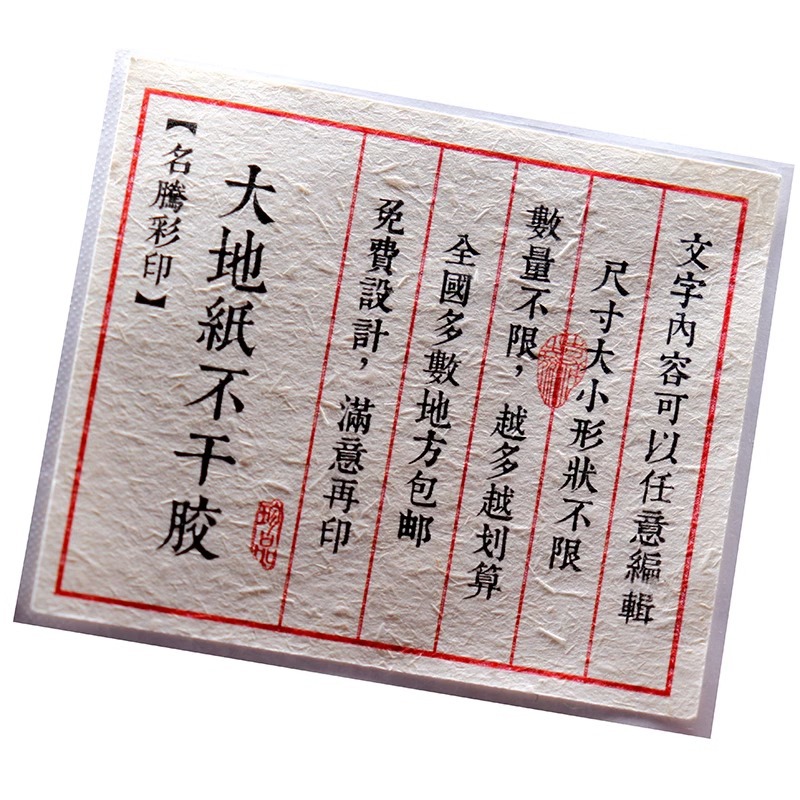 文字內容可以任意編輯
尺寸大小形狀不限
數量不限，越多越划算
全國多數地方包邮
免費設計，滿意再印
大地紙不干胶
【名騰彩印】